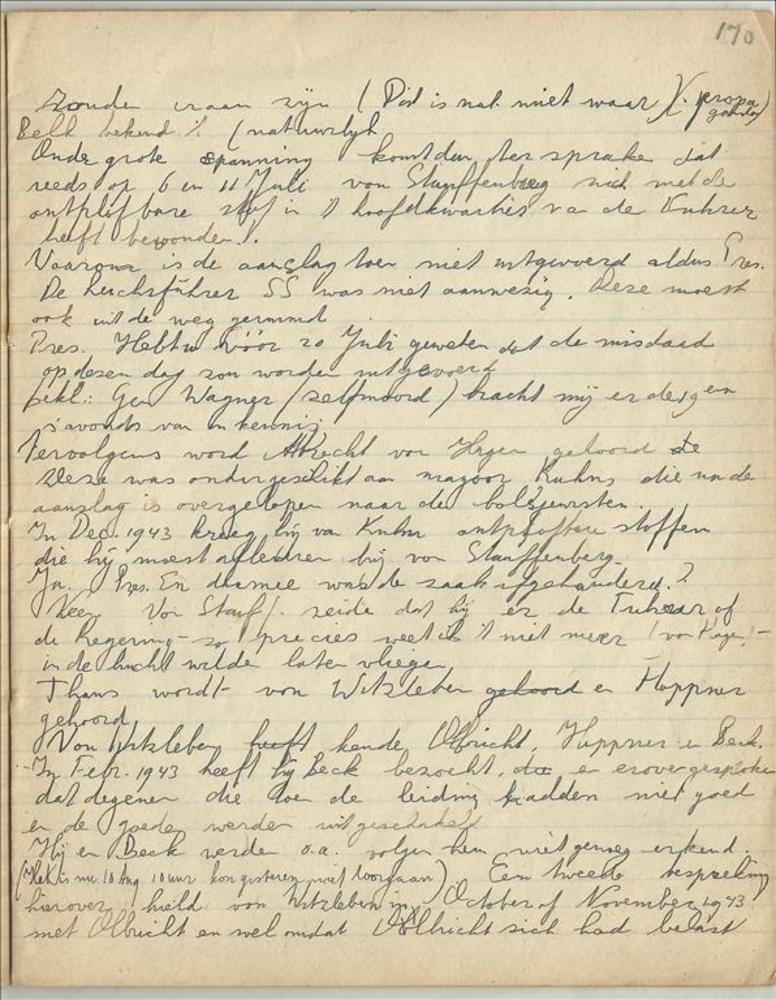 170
zonder vraam zijn (Dit is nat. niet waar) (. propa
ganda)
Bekl bekend %. (natuurlijk
Onder grote spanning komt dan ter sprake dat
reeds op 6 en 11 Juli von Stauffenberg sich met de
ontplofbare stof in 't hoofdkwartier va de Fuhrer
heeft bevonden %.
Waarom is de aanslag toen niet uitgevoerd aldus Pres.
De Reichsführer SS was niet aanwezig. Deze moest
ook uit de weg geruimd
Pres. Hebt u vóór 20 Juli geweten dat de misdaad
op dezen dag zou worden uitgevoerd
Bekl.: Gen Wagner (zelfmoord) bracht mij er dergen
s'avonds van in kennis
Vervolgens word Albrecht von Hagen gehoord De
Deze was ondergeschikt aan majoor Kuhn die na de
aanslag is overgelopen naar de bolsjewisten.
In Dec. 1943 kreeg hij van Kuhn ontplofbare stoffen
die hij moest afleveren bij von Stauffenberg.
Ja. Pres. En daarmee was de zaak afgehandeld.?
Neen Von Stauf/. zeide dat hij er de Fuhrer of
de Regering - zo precies weet ik 't niet meer (von Hagen) -
in de lucht wilde laten vliegen
Thans wordt von Witzleben gehoord en Hoppner
gehoord,
Von Witzleben heeft kende Olbricht, Hoppner en Beck.
In Febr. 1943 heeft hij Beck bezocht, die en erover gesproken
dat degenen die toen de leiding hadden niet goed
en de goede werden uitgeschakeld
Hij en Beck werden o.a. volgen hem niet genoeg erkend.
(Het is nu 10 Aug 10 uur kon gisteren niet doorgaan) Een tweede bespreking
hierover hield von Witzleben in October of November 1943
met Olbricht en wel omdat Olbricht sich had belast